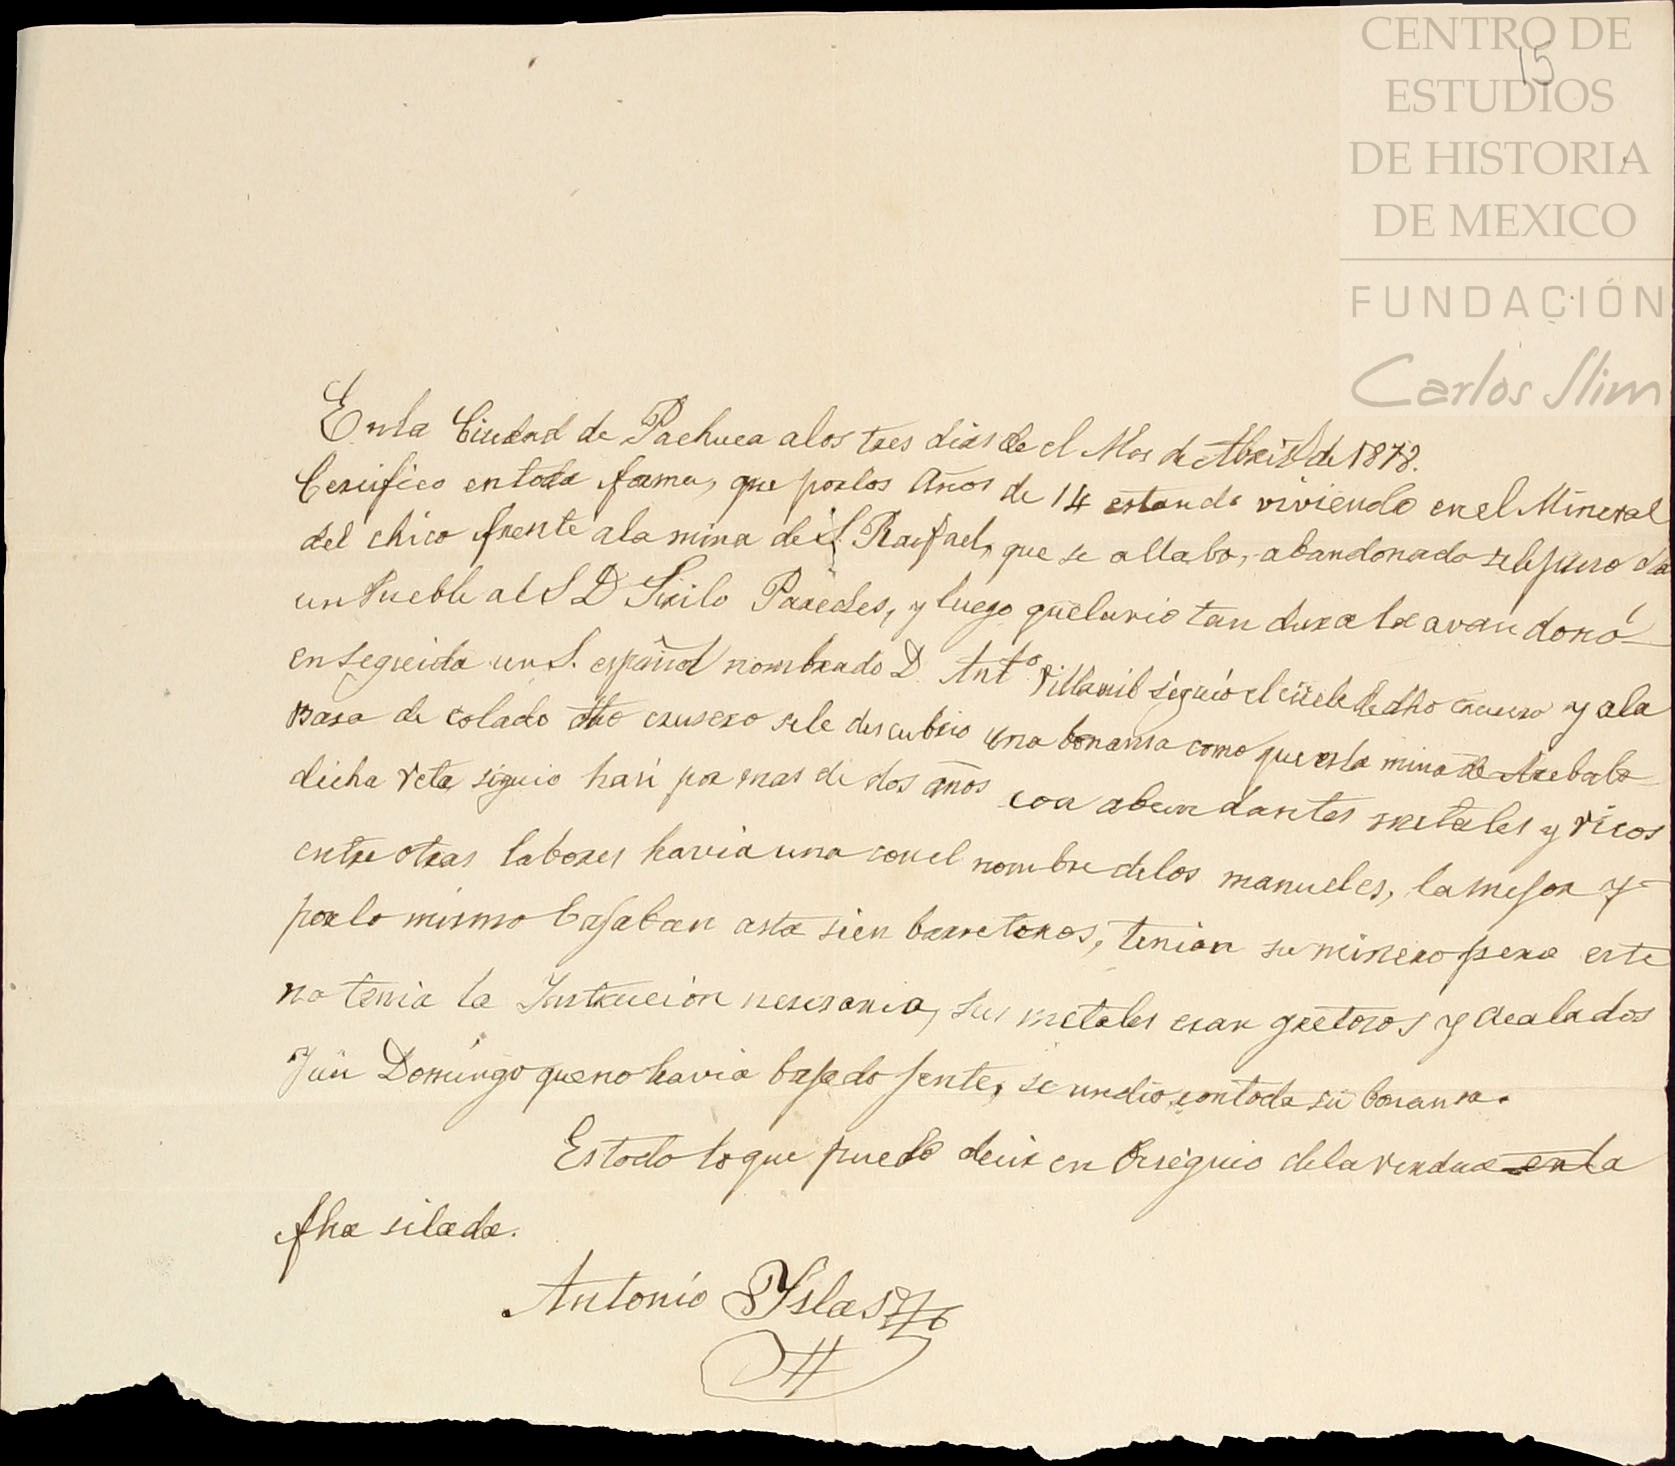 CENTRO DE
ESTUDIOS
DE HISTORIA
DE MEXICO
FUNDACIÓN
Carlos Slim
15
En la Ciudad de Pachuca alos tres dias de el Mes de Abril de 1878.
Cerifico en toda forma, que por los Años de 14 estando viviendo en el Mineral
del chico frente ala mina de S. Rafael, que se allaba, abandonada se le puso
un Pueble al S D Sirilo Paredes, y luego que la vio tan dura la avandonó
enseguida un S. español nombrado D. Antº Villamil siguió el de dho crusero y ala
Bara de colado dho crusero se le descubrio una bonansa como que es la mina de Arebalo
dicha veta siguio hasi por mas de dos años con abundantes metales y ricos
entre otras labores havia una con el nombre delos manueles, la mejor y
por lo mismo bajaban asta sien barreteros, tenian su minero pero este
no tenia la Instrucion nesesaria, sus metales eran gretosos y acalados
Y un Domingo que no havia bajado jente, se undio con toda su bonansa.
Es todo lo que puedo decir en Oseguio dela verdad en la
fha silada.
Antonio Yslas